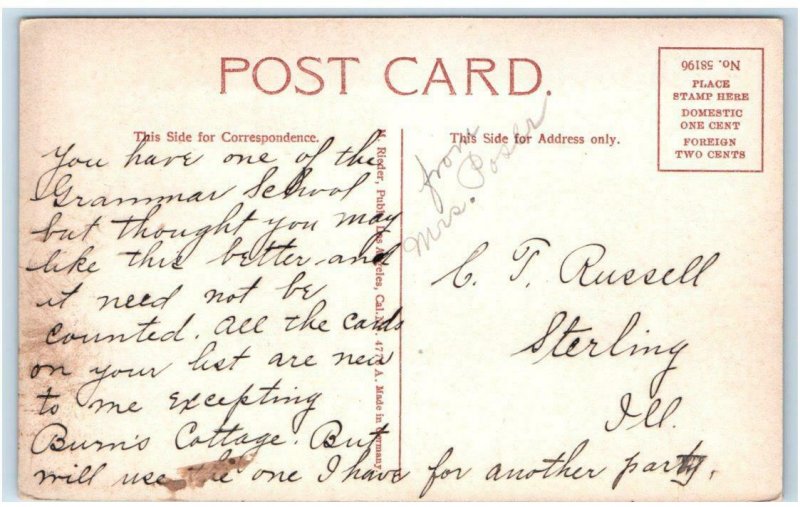 POST CARD.
No. 58196
PLACE
STAMP HERE
DOMESTIC
ONE CENT
FOREIGN
TWO CENTS
This Side for Correspondence.
This Side for Address only.
You have one of the
Grammar School
but thought you may
like this better and
it need not be
counted. All the cards
on your list are new
to me excepting
Burn's Cottage. But
will use the one I have for another party.
Rieder, Publ. Los Angeles, Cal. Made in Germany
from
Mrs. Poser
C. T. Russell
Sterling
Ill.